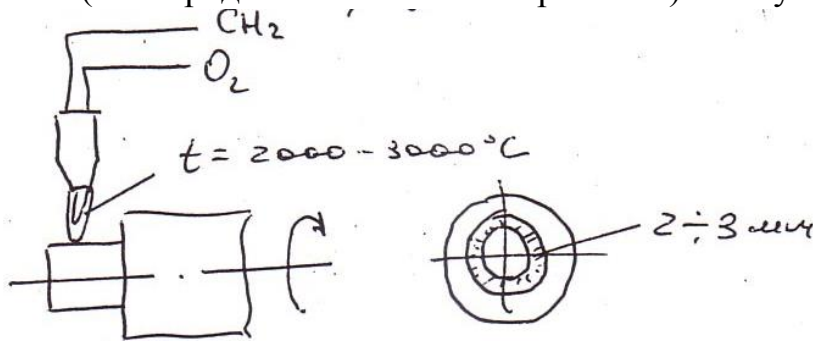 CH₂
O₂
t = 2000 - 3000°C
2÷3 мм